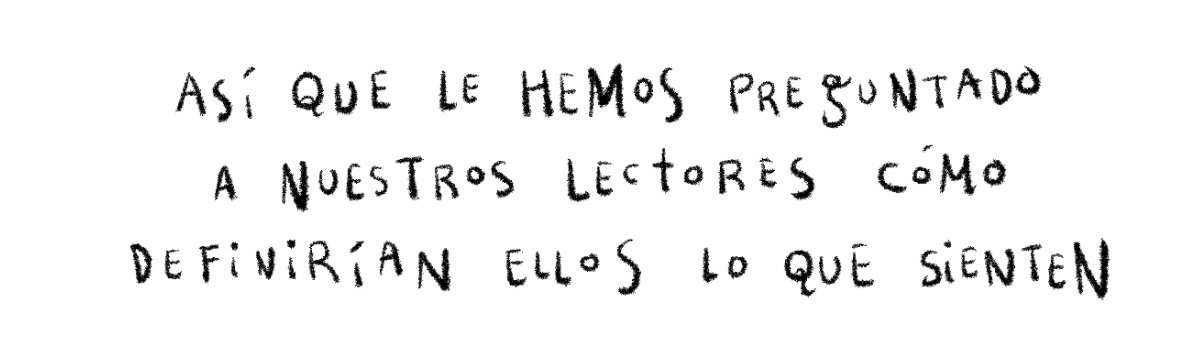 ASÍ QUE LE HEMOS PREGUNTADO
A NUESTROS LECTORES CÓMO
DEFINIRÍAN ELLOS LO QUE SIENTEN